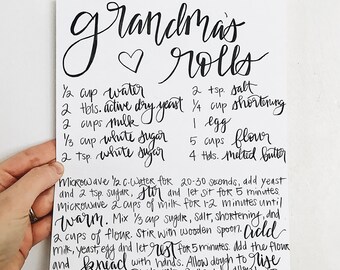 grandma's
rolls
½ cup water
2 tbls. active dry yeast
2 cups milk
⅓ cup white sugar
2 tsp. white sugar
2 tsp. salt
¼ cup shortening
1 egg
5 cups flour
4 tbls. melted butter
Microwave ½ c. water for 20-30 seconds, add yeast
and 2 tsp sugar, stir and let sit for 5 minutes
Microwave 2 cups of milk for 1-2 minutes until
warm. Mix ⅓ cup sugar, salt, shortening, and
2 cups of flour. Stir with wooden spoon. Add
milk, yeast, egg and let rest for 5 minutes add the flour
and knead with hands. Allow dough to rise